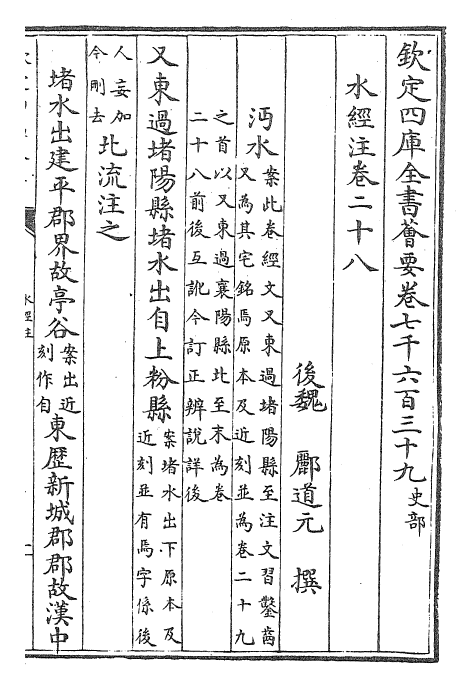 欽定四庫全書薈要卷七千六百三十九 史部
水經注卷二十八
後魏 酈道元 撰
沔水 案此卷經文又東過堵陽縣至注文習鑿齒
又為其宅銘焉原本及近刻並為卷二十九
之首以又東過襄陽縣北至末為卷
二十八前後互訛今訂正辨說詳後
又東過堵陽縣堵水出自上粉縣 案堵水出下原本及
近刻並有焉字係後
人妄加
今刪去 北流注之
堵水出建平郡界故亭谷 案出近
刻作自 東歷新城郡郡故漢中
水經注